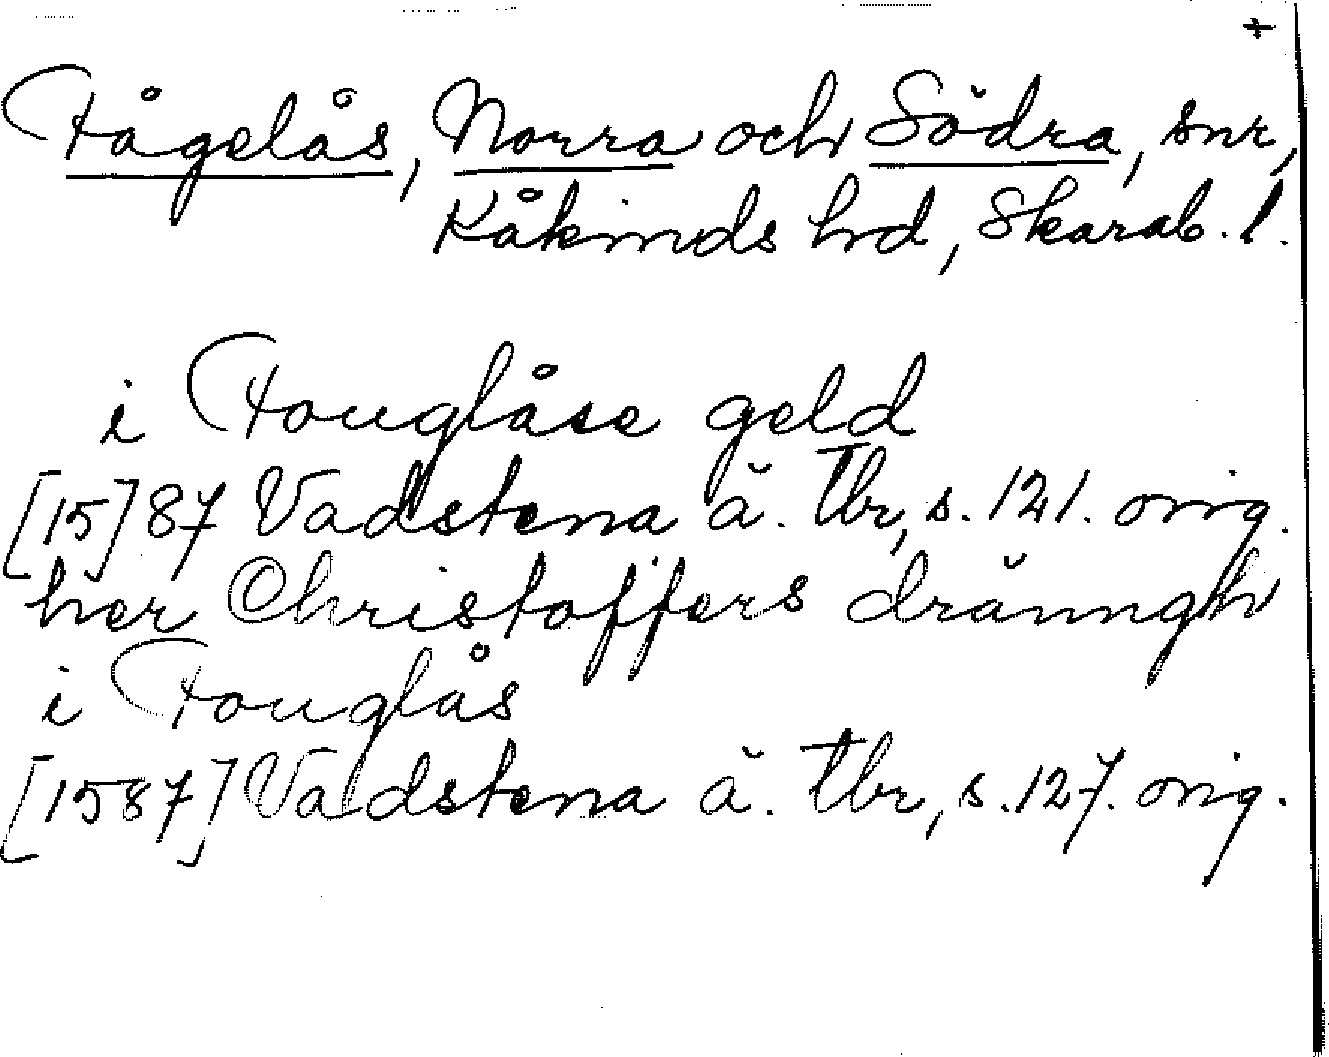 +
Fågelås, Norra och Södra, snr,
Kåkinds hd, Skarab. l.
i Fouglåse geld
[15]87 Vadstena ä. Tbr, s. 121. orig.
her Christoffers dränngh
i Fouglås
[1587] Vadstena ä. Tbr, s. 127. orig.